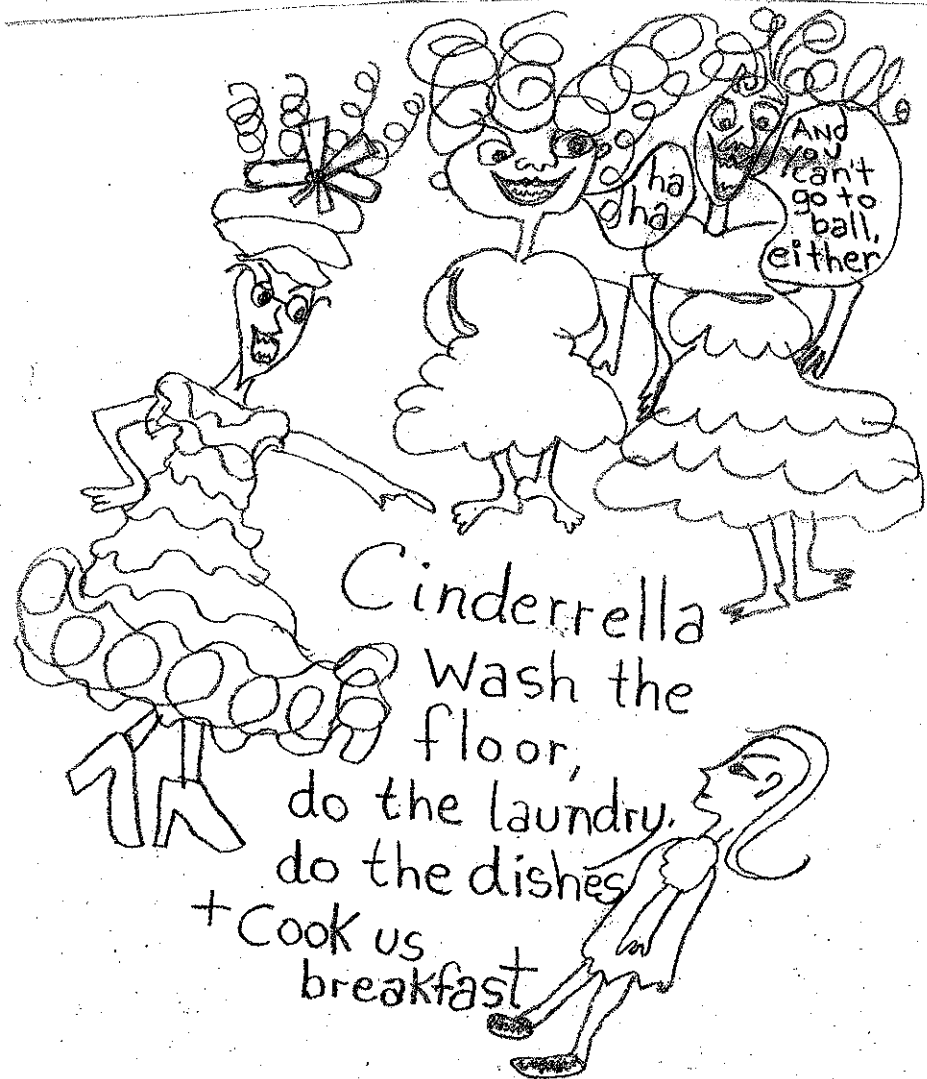 ha
ha
AND
you
can't
go to
ball,
either
Cinderrella
Wash the
floor,
do the laundry.
do the dishes
+ Cook us
breakfast